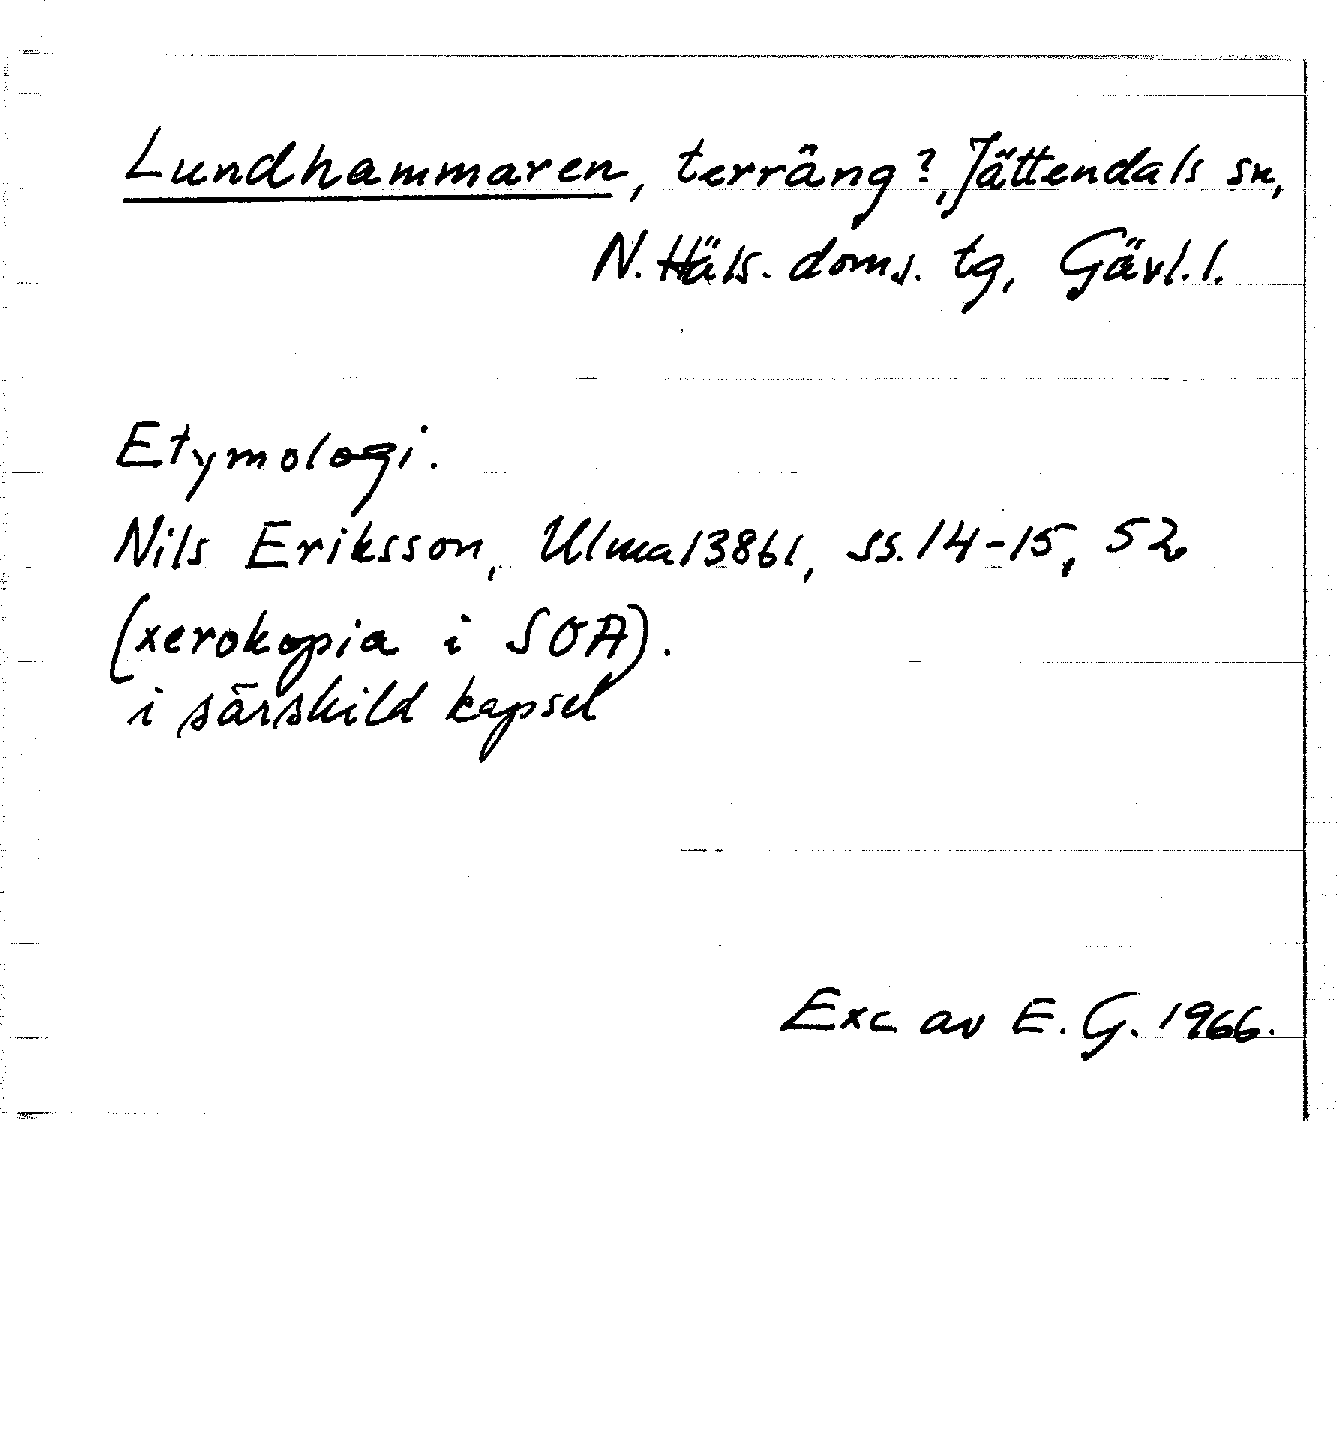 Lundhammaren, terräng?, Jättendals sn,
N. Häls. doms. tg, Gävl. l.
Etymologi.
Nils Eriksson, Ulma 13861, ss. 14-15, 52
(xerokopia i SOA).
i särskild kapsel
Exc av E. G. 1966.